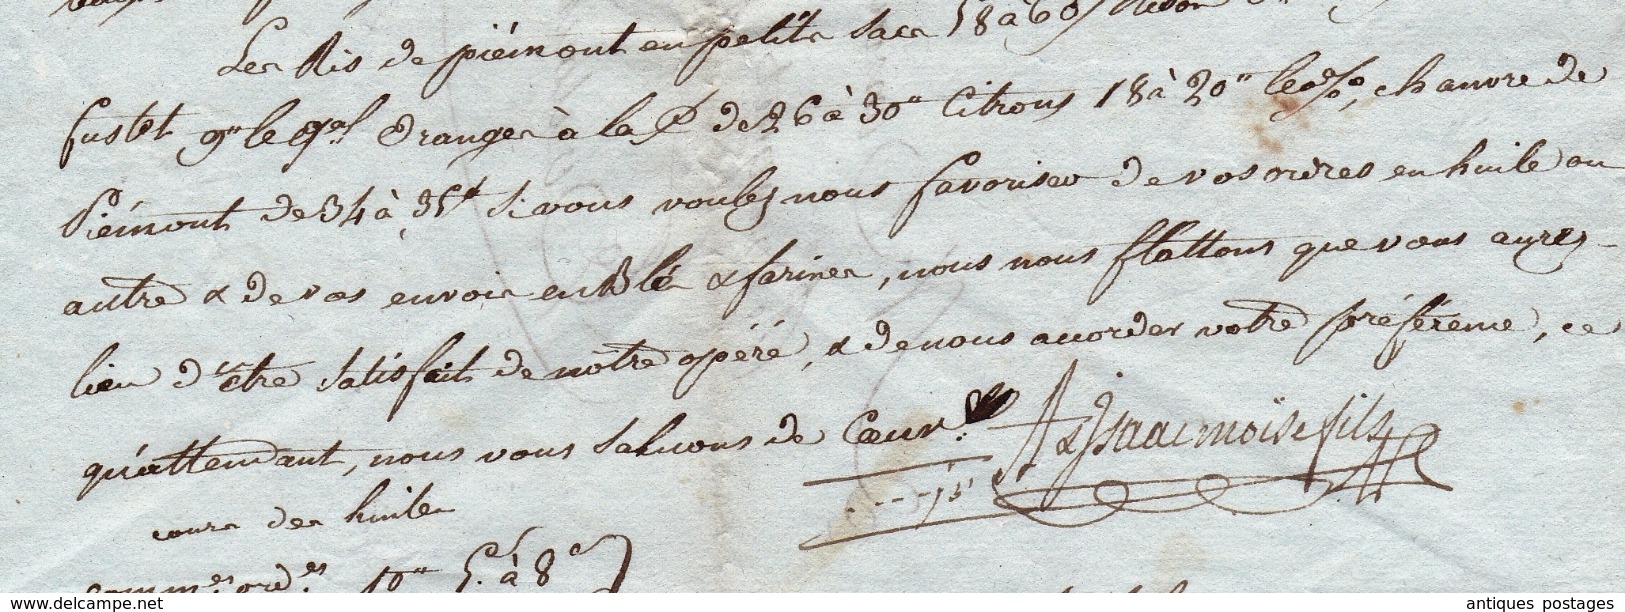 Les Ris de piémont en petits sacs 58 à 60
fustet 9# le q.al Oranges à la P de 26 à 30# Citrons 18 à 20# le o/o, chanvre de
Piémont de 34 à 35# si vous voulez nous favoriser de vos ordres en huile ou
autre & de vos envois en Blés & farines, nous nous flattons que vous aurez
lieu d'être satisfait de notre opéré, & de nous accorder votre préférence, ce
qu'attendant, nous vous saluons de Cœur.
& Isaac moïse fils
cours des huiles
comm.es ord.es 10# 5.s à 8
antiques postages